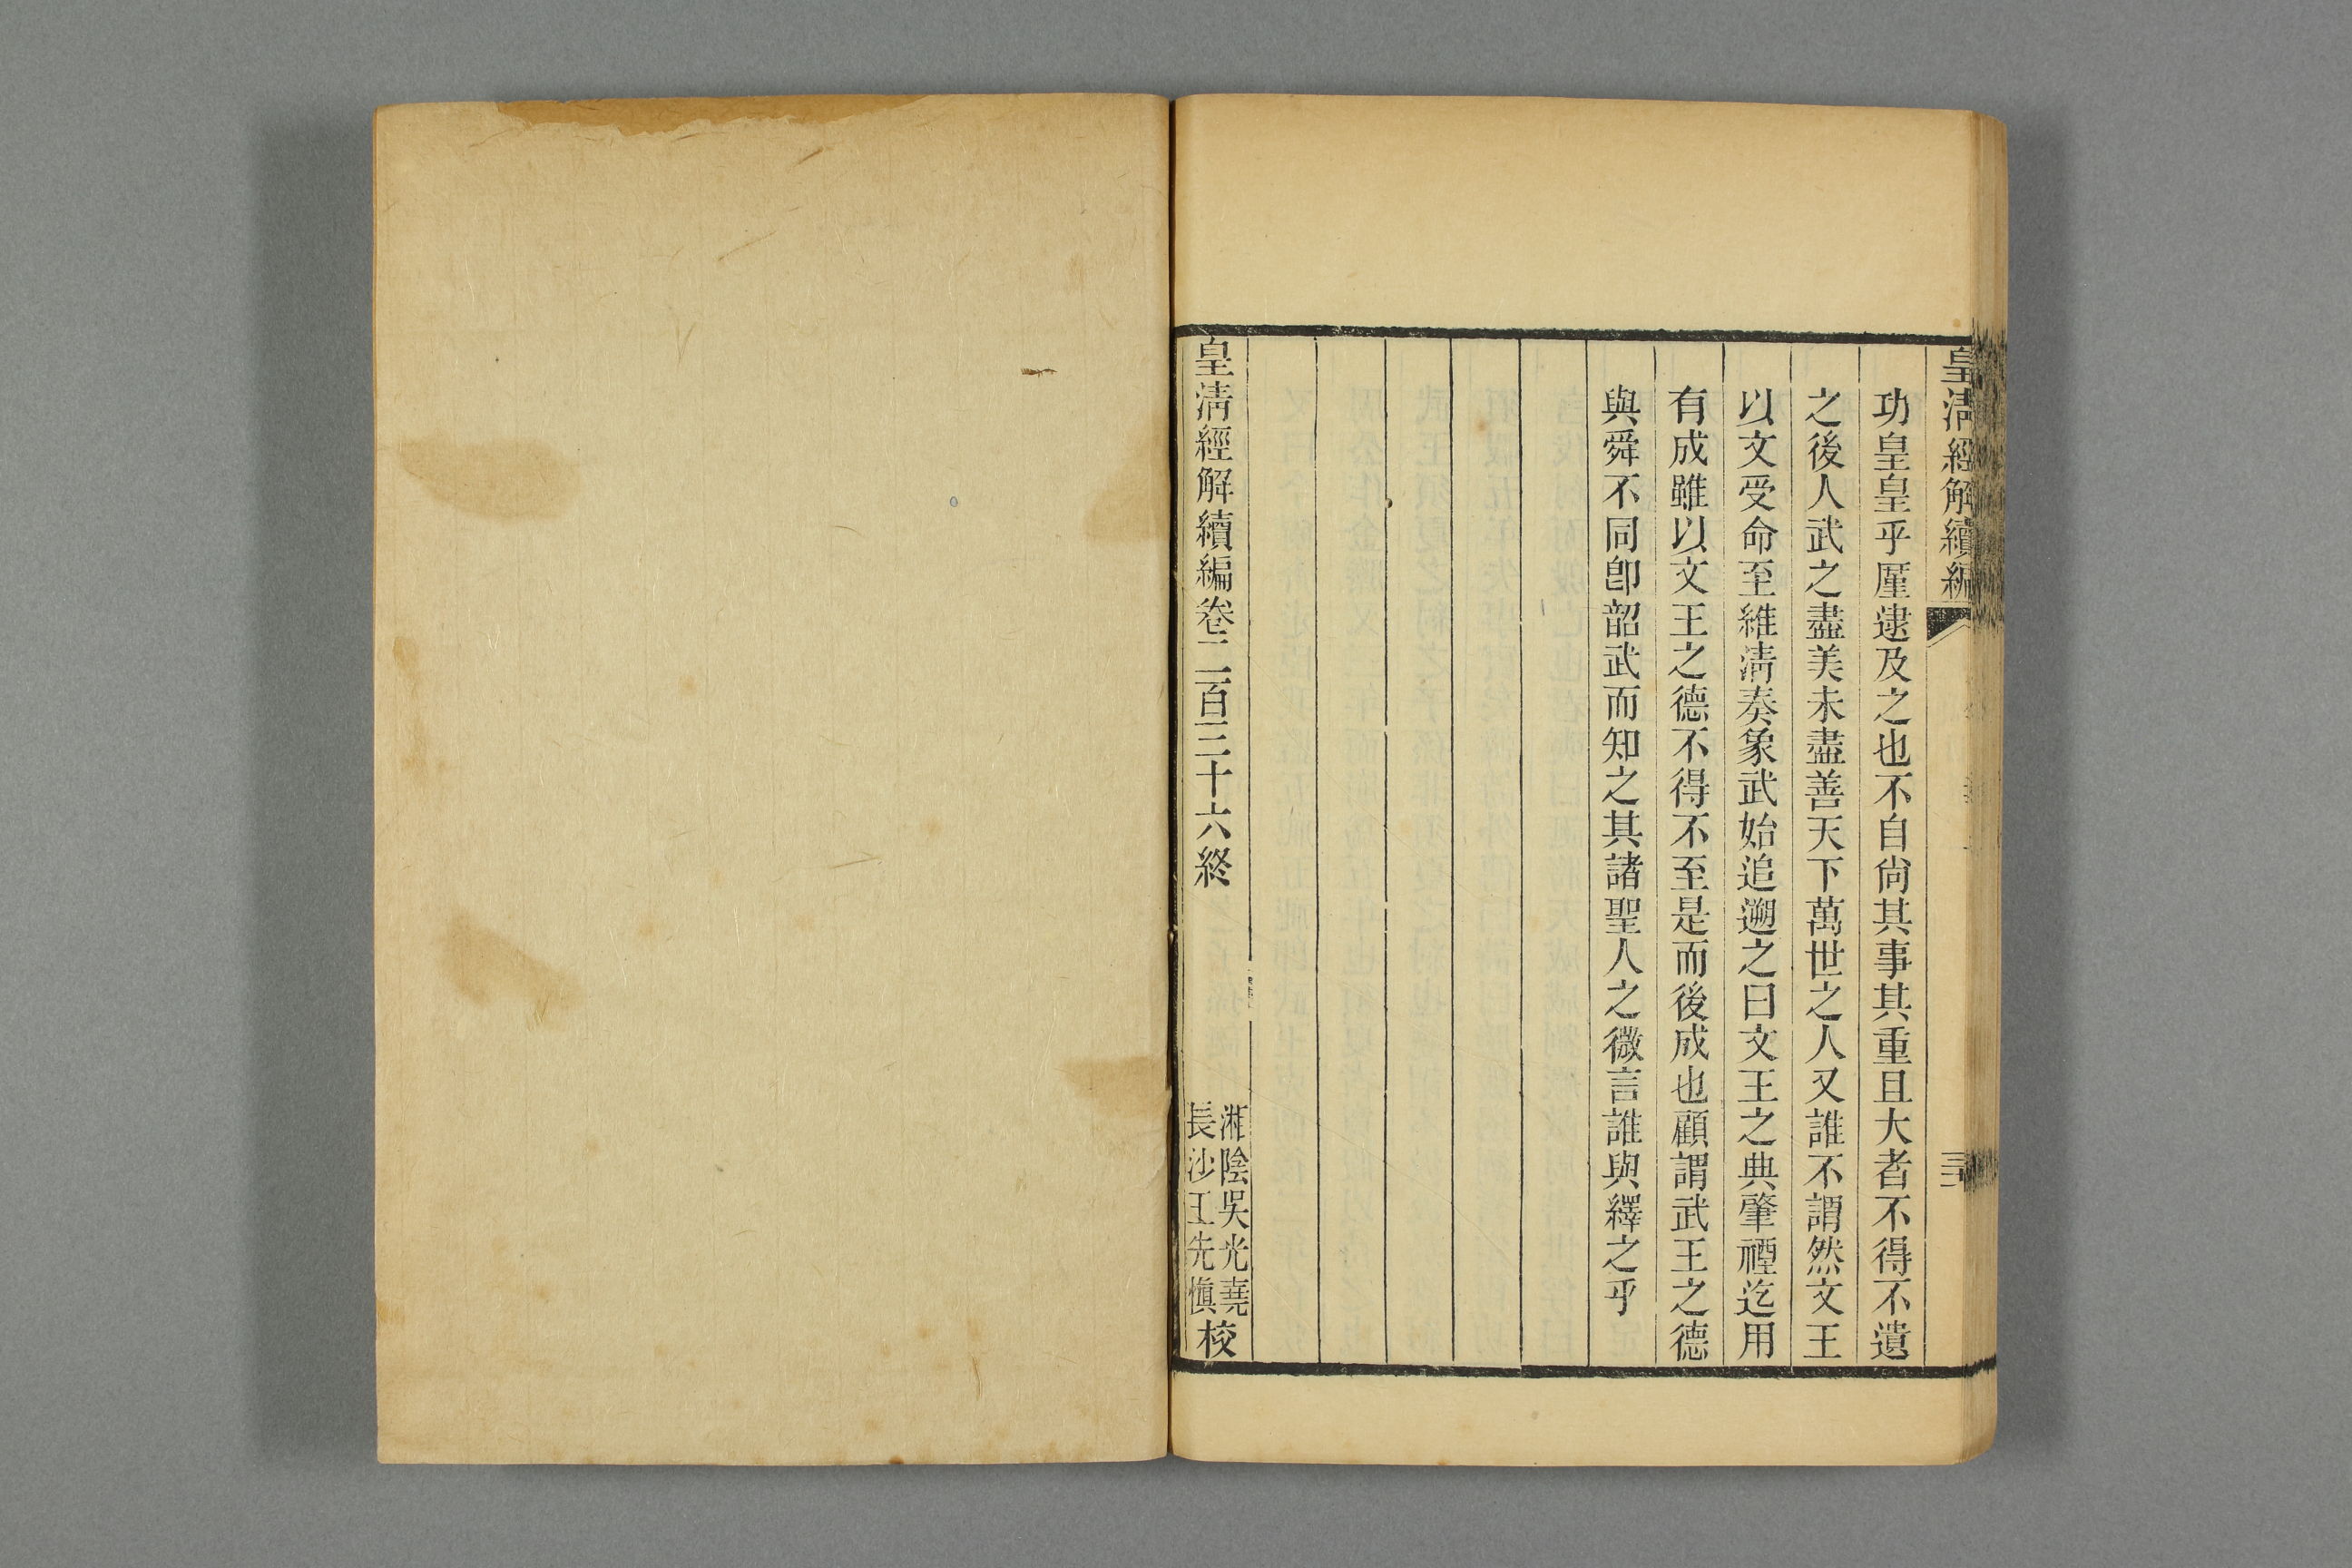 皇清經解續編
三十
功皇皇乎厪逮及之也不自尙其事其重且大者不得不遺
之後人武之盡美未盡善天下萬世之人又誰不謂然文王
以文受命至維清奏象武始追遡之曰文王之典肇禋迄用
有成雖以文王之德不得不至是而後成也顧謂武王之德
與舜不同卽韶武而知之其諸聖人之微言誰與繹之乎
皇清經解續編卷二百三十六終
湘陰吳光堯
長沙王先愼
校